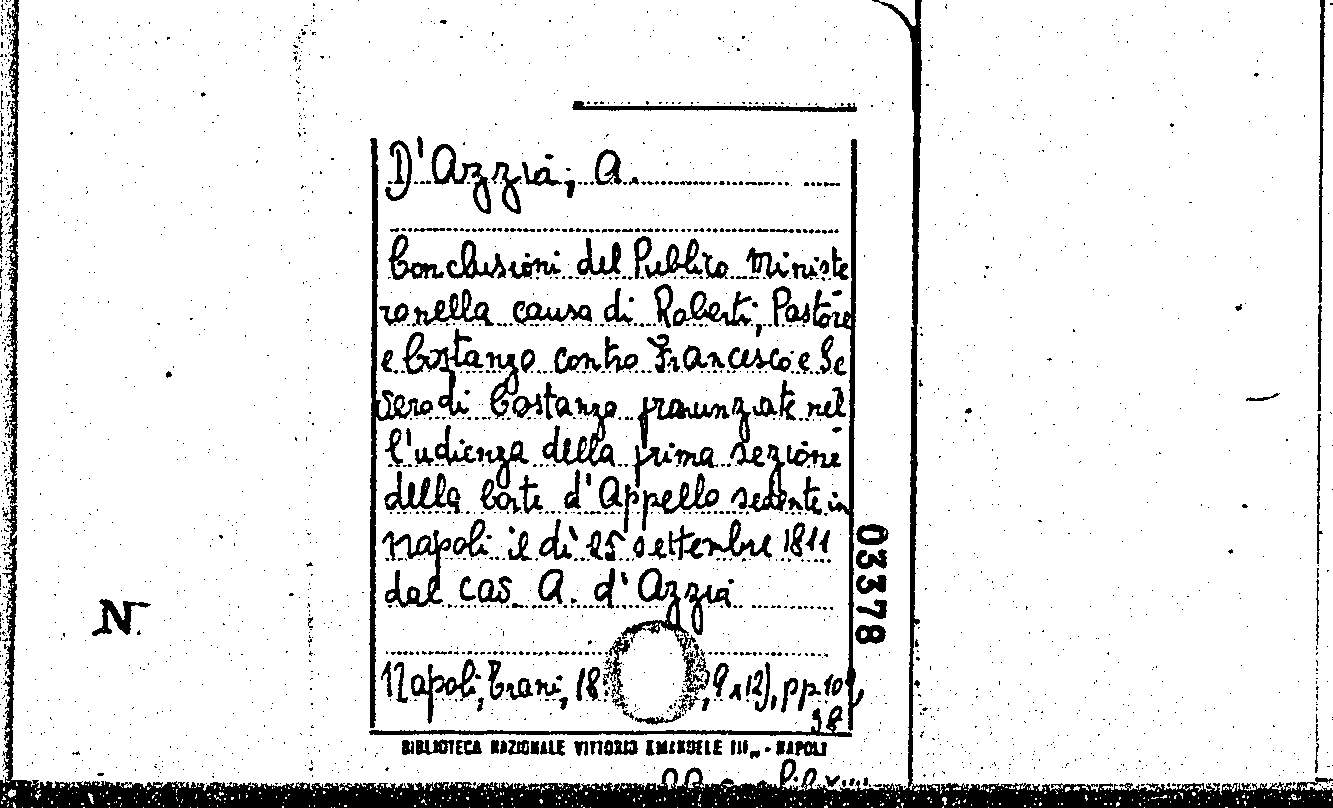 D'Azzia, A.
Conclusioni del Publico Ministe
ro nella causa di Roberti, Pastore
e Costanzo contro Francesco e Se
vero di Costanzo pronunziate nel
l'udienza della prima sezione
della Corte d'Appello sedente in
Napoli il dì 25 settembre 1811
dal cas. A. d'Azzia
N.
Napoli, Trani, 18
pp. 101,
38
03378
BIBLIOTECA NAZIONALE VITTORIO EMANUELE III„ - NAPOLI